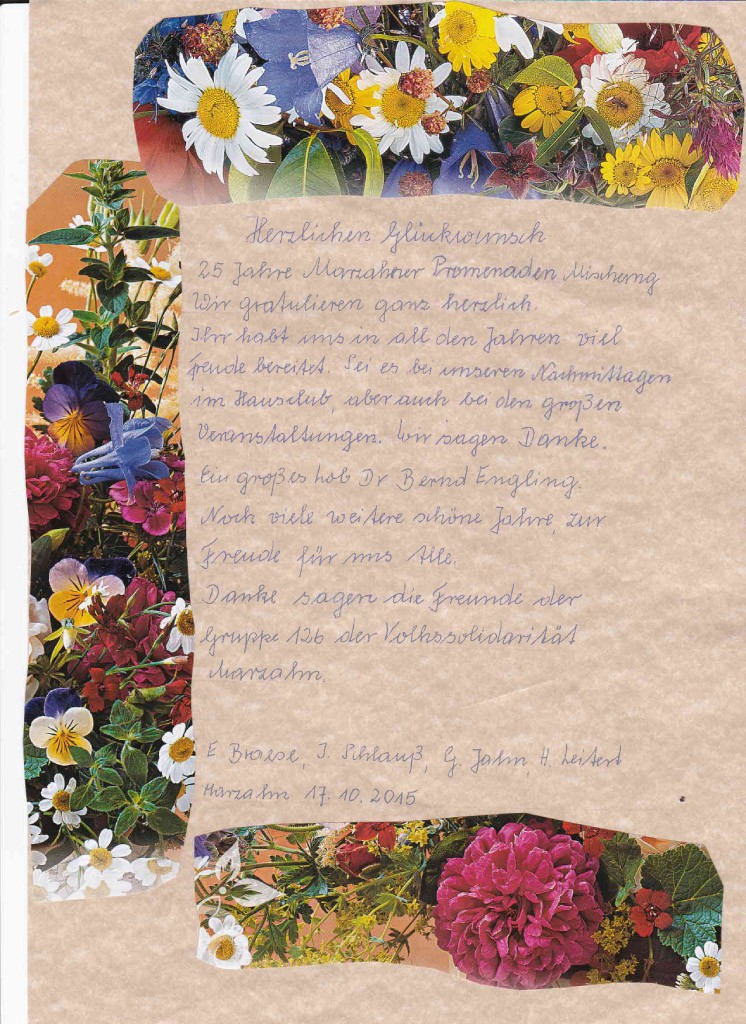 Herzlichen Glückwunsch
25 Jahre Marzahner Promenaden Mischung
Wir gratulieren ganz herzlich.
Ihr habt uns in all den Jahren viel
Freude bereitet. Sei es bei unseren Nachmittagen
im Hausclub, aber auch bei den großen
Veranstaltungen. Wir sagen Danke.
Ein großes Lob Dr Bernd Engling.
Noch viele weitere schöne Jahre, zur
Freude für uns Alle.
Danke sagen die Freunde der
Gruppe 126 der Volkssolidarität
Marzahn.
E Braese, I. Schlauß, G. Jahn, H. Leitert
Marzahn 17.10.2015